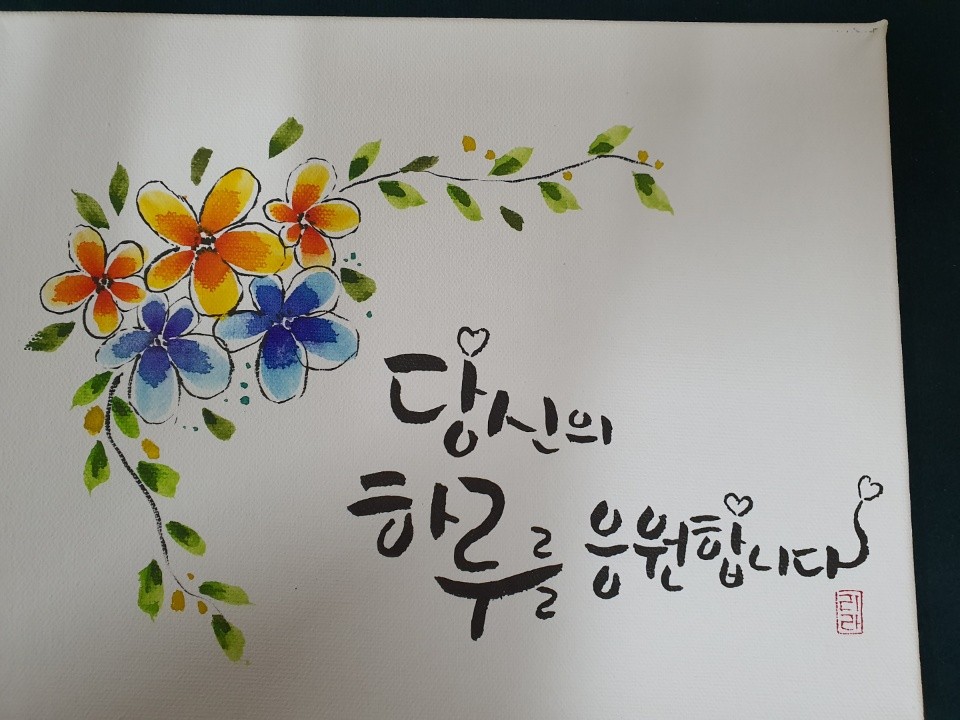 당신의
하루를 응원합니다
리라